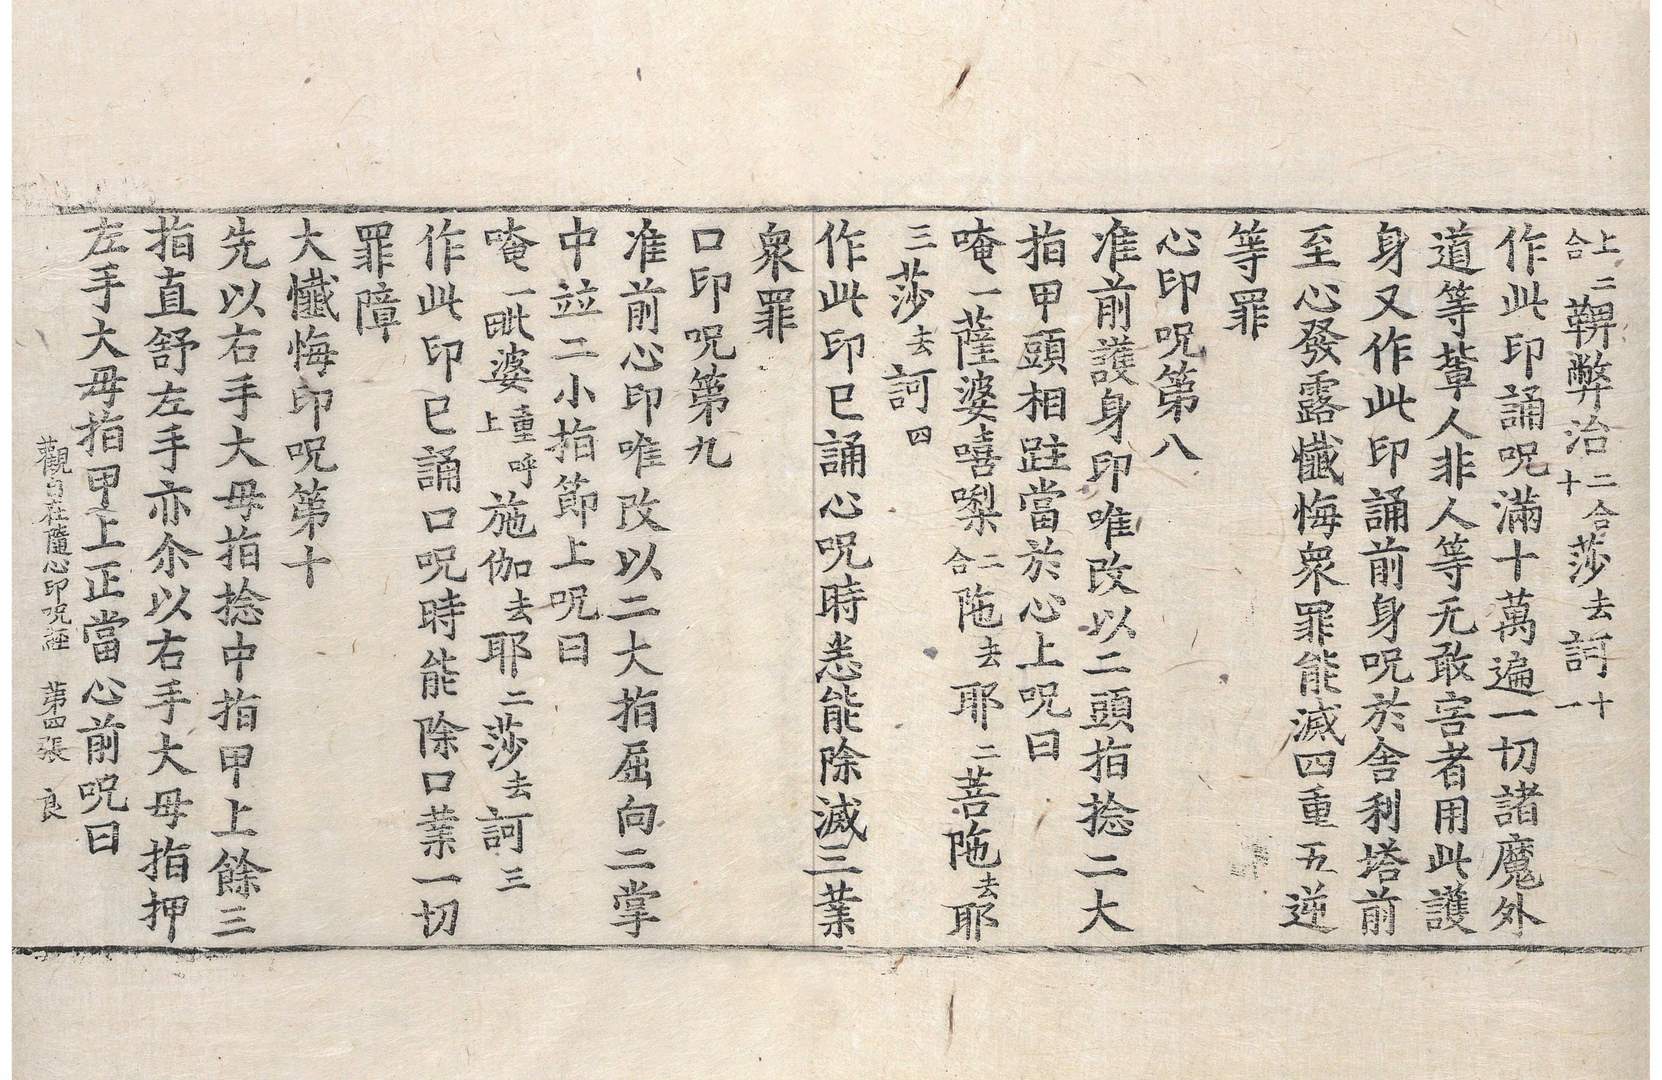 上二合鞞弊治二合十莎去訶十一
作此印誦呪滿十萬遍一切諸魔外
道等軰人非人等无敢害者用此護
身又作此印誦前身呪於舍利塔前
至心發露懺悔衆罪能滅四重五逆
等罪
心印呪第八
准前護身印唯改以二頭指捻二大
指甲頭相跓當於心上呪曰
唵一薩婆嘻㗚二合陁去耶二菩陁去耶
三莎去訶四
作此印已誦心呪時悉能除滅三業
衆罪
口印呪第九
准前心印唯改以二大指屈向二掌
中竝二小指節上呪曰
唵一毗婆重呼上施伽去耶二莎去訶三
作此印已誦口呪時能除口業一切
罪障
大懺悔印呪第十
先以右手大母指捻中指甲上餘三
指直舒左手亦尒以右手大母指押
左手大母指甲上正當心前呪曰
觀自在隨心印呪經 第四張 良